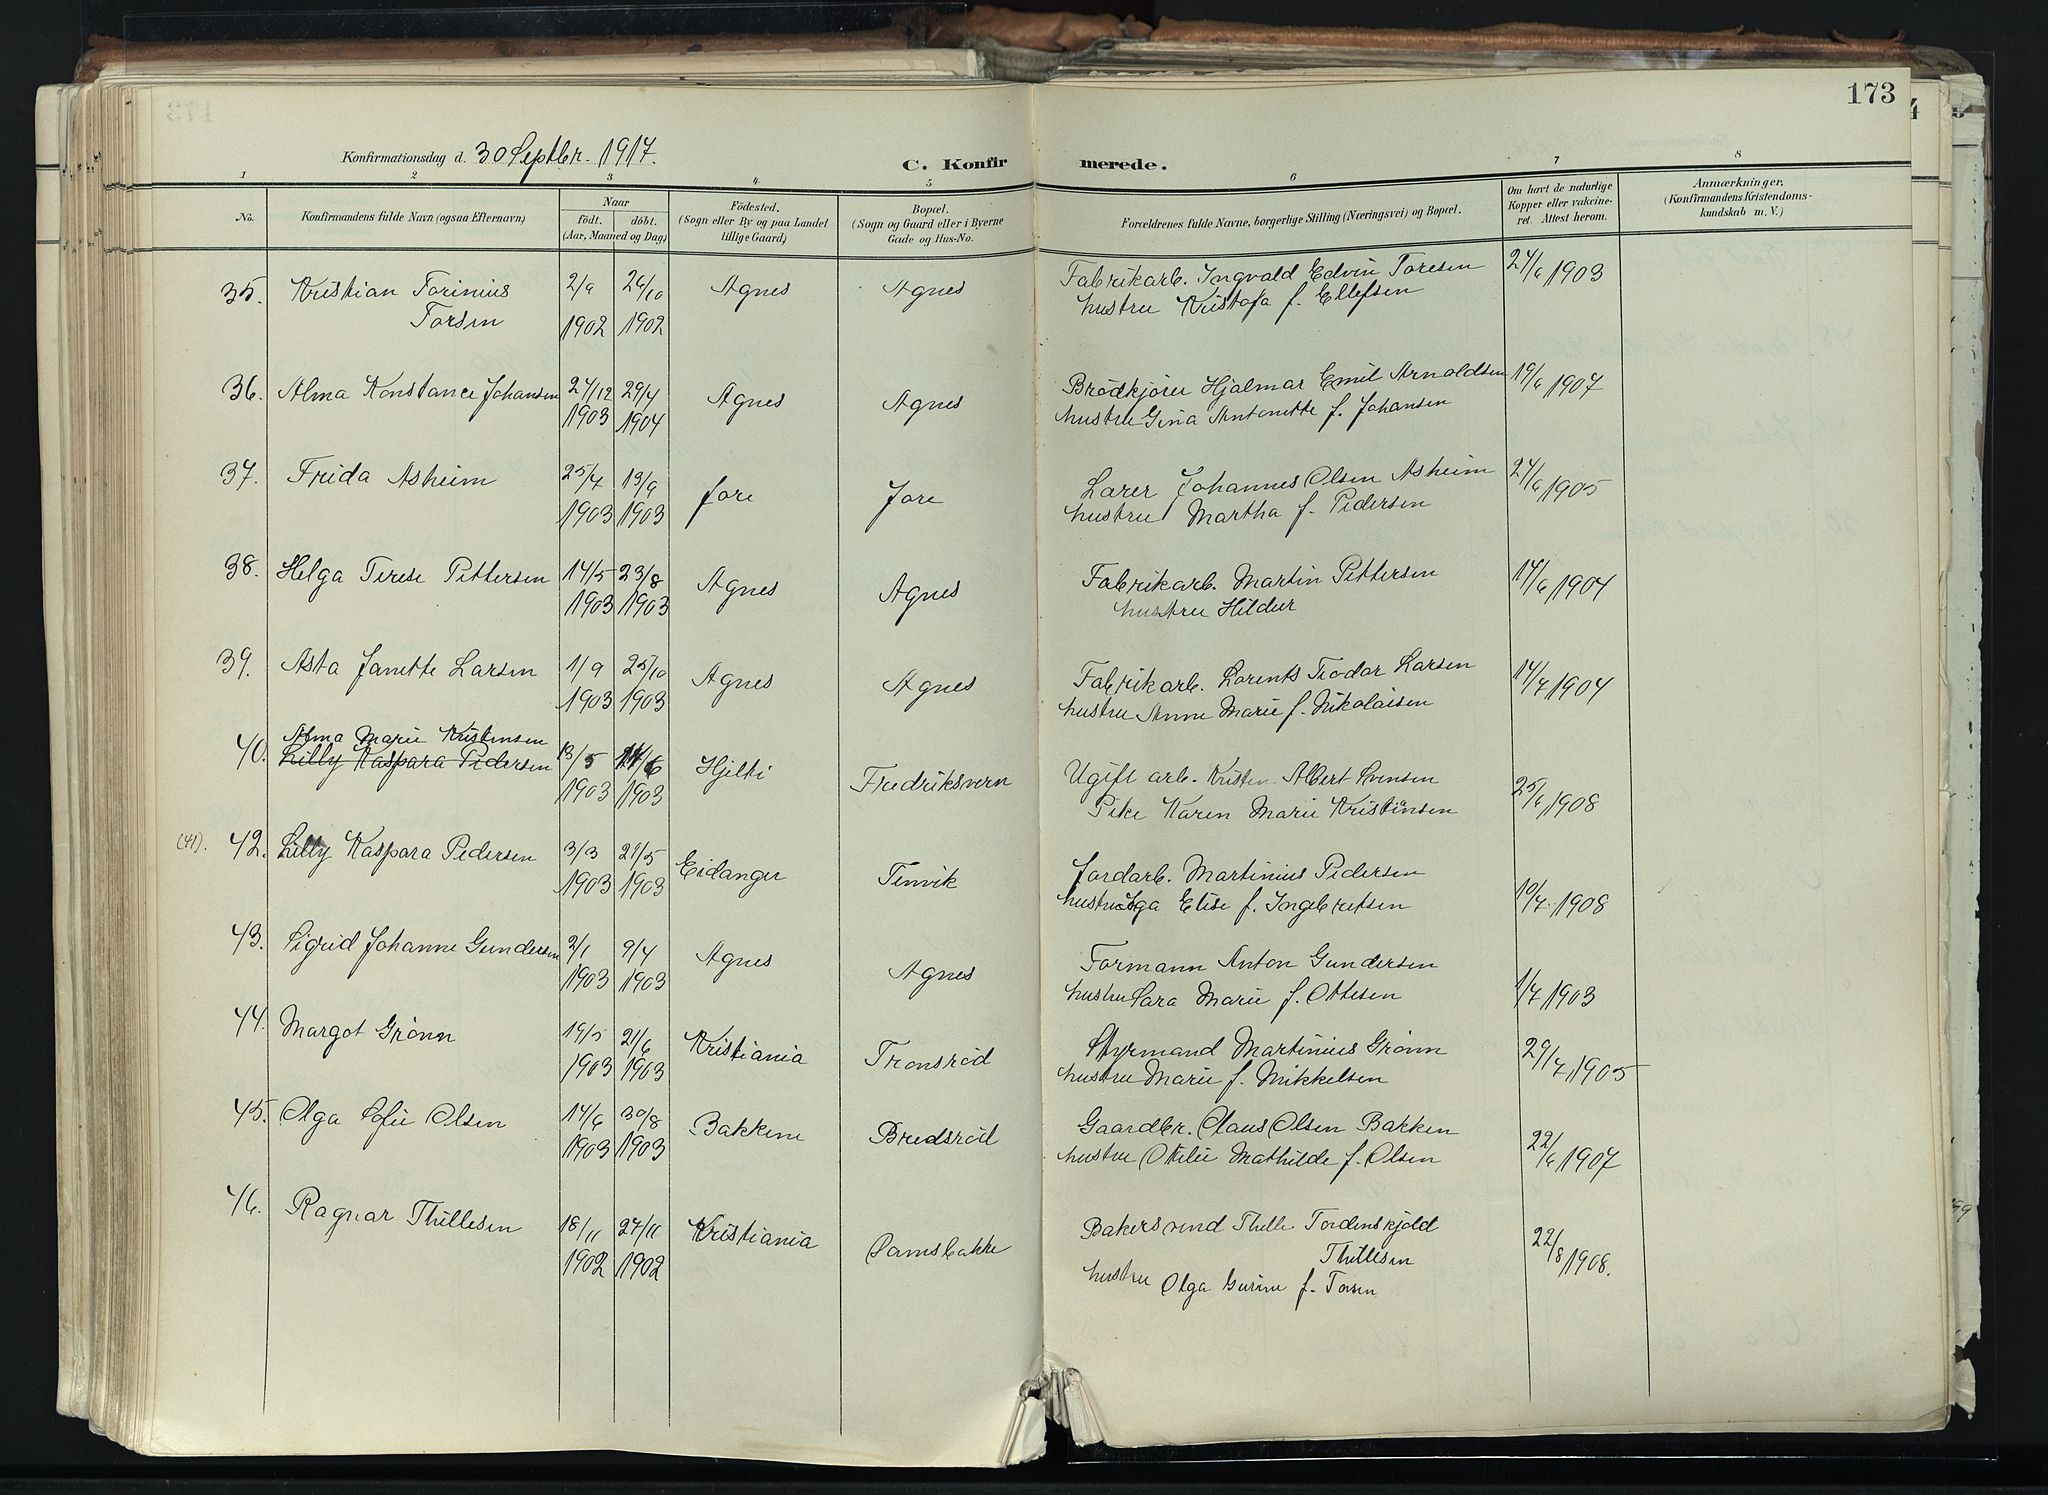 173
Konfirmationsdag d. 30 Septbr. 1917.
C. Konfirmerede.
1 2 3 4 5 6 7 8
No.
Konfirmandens fulde Navn (ogsaa Efternavn)
Naar
födt. döbt.
(Aar, Maaned og Dag)
Födested.
(Sogn eller By og paa Landet
tillige Gaard)
Bopæl.
(Sogn og Gaard eller i Byerne
Gade og Hus-No.
Forældrenes fulde Navne, borgerlige Stilling (Næringsvei) og Bopæl.
Om havt de naturlige
Kopper eller vakcine-
ret. Attest herom.
Anmærkninger,
(Konfirmandens Kristendoms-
kundskab m. V.)
35. Kristian Torinius 2/9 26/10 Agnes Agnes Fabrikarb. Ingvald Edvin Toresen 24/6 1903
Torsen 1902 1902 hustru Kristofa f. Ellefsen
36. Alma Konstance Johansen 27/12 29/4 Agnes Agnes Brödkjörer Hjalmar Emil Arnoldsen 19/6 1907
1903 1904 hustru Gina Antonette f. Johansen
37. Frida Asheim 25/4 13/9 Jore Jore Lærer Johannes Olsen Asheim 24/6 1905
1903 1903 hustru Martha f. Pedersen
38. Helga Terese Pettersen 14/5 23/8 Agnes Agnes Fabrikarb. Martin Pettersen 14/6 1904
1903 1903 hustru Hildur
39. Asta Janette Larsen 1/9 25/10 Agnes Agnes Fabrikarb. Lorents Teodor Larsen 14/7 1904
1903 1903 hustru Anne Marie f. Nikolaisen
Alma Marie Kristensen
40. Lilly Kaspara Pedersen 13/5 14/6 Hjelti Fredriksvern Ugift arb. Kristen Albert Svensen 25/6 1908
1903 1903 Pike Karen Marie Kristensen
(41). 42. Lilly Kaspara Pedersen 3/3 21/5 Eidanger Tenvik Jordarb. Martinius Pedersen 10/7 1908
1903 1903 hustru Inga Elise f. Ingebretsen
43. Sigrid Johanne Gundersen 2/1 9/4 Agnes Agnes Formann Anton Gundersen 1/7 1903
1903 1903 hustru Sara Marie f. Ottesen
44. Margot Grönn 19/5 21/6 Kristiania Tronsröd Styrmand Martinius Grönn 29/7 1905
1903 1903 hustru Marie f. Mikkelsen
45. Olga Sofie Olsen 14/6 30/8 Bakkene Bredsröd Gaardbr. Claus Olsen Bakken 22/6 1907
1903 1903 hustru Otilie Mathilde f. Olsen
46. Ragnar Thillesen 18/11 27/11 Kristiania Damsbakke Bakersvend Thille Tordenskjold 22/8 1908.
1902 1902 Thillesen
hustru Olga Gurine f. Torsen